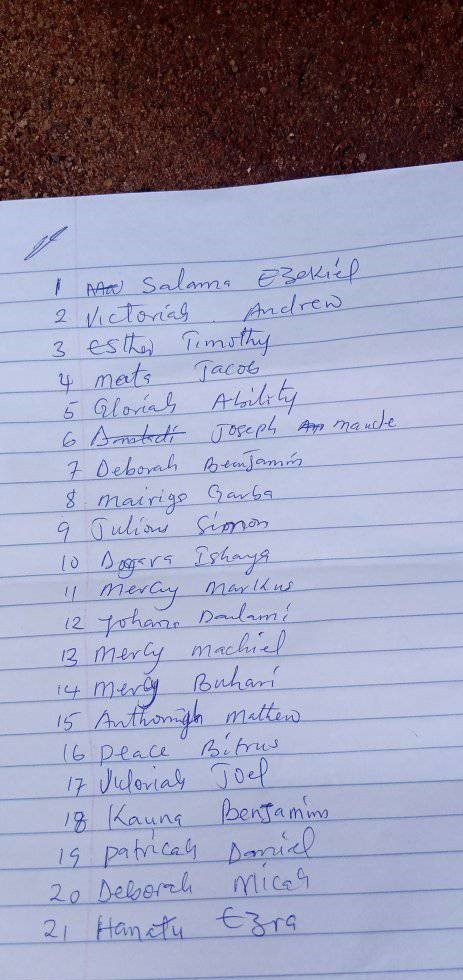 1 Salama Ezekiel
2 Victoriah Andrew
3 Esther Timothy
4 meats Jacob
5 Gloriah Ability
6 Joseph maude
7 Deborah Benjamin
8 mairigo Garba
9 Julious Simon
10 Dogara Ishaya
11 mercy markus
12 Yohana Danlami
13 mercy machiel
14 mercy Buhari
15 Mathew
16 peace Bitrus
17 Victoriah Joel
18 Kauna Benjamins
19 patricah Daniel
20 Deborah micah
21 Hanatu Ezra